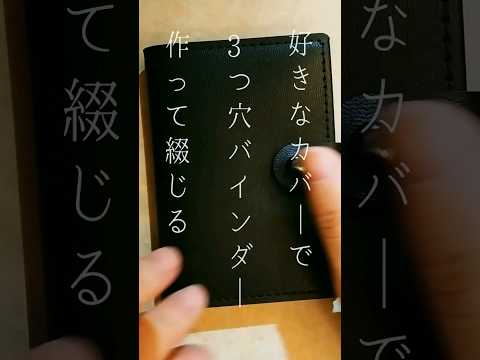 好きなカバーで
3つ穴バインダー
作って綴じる